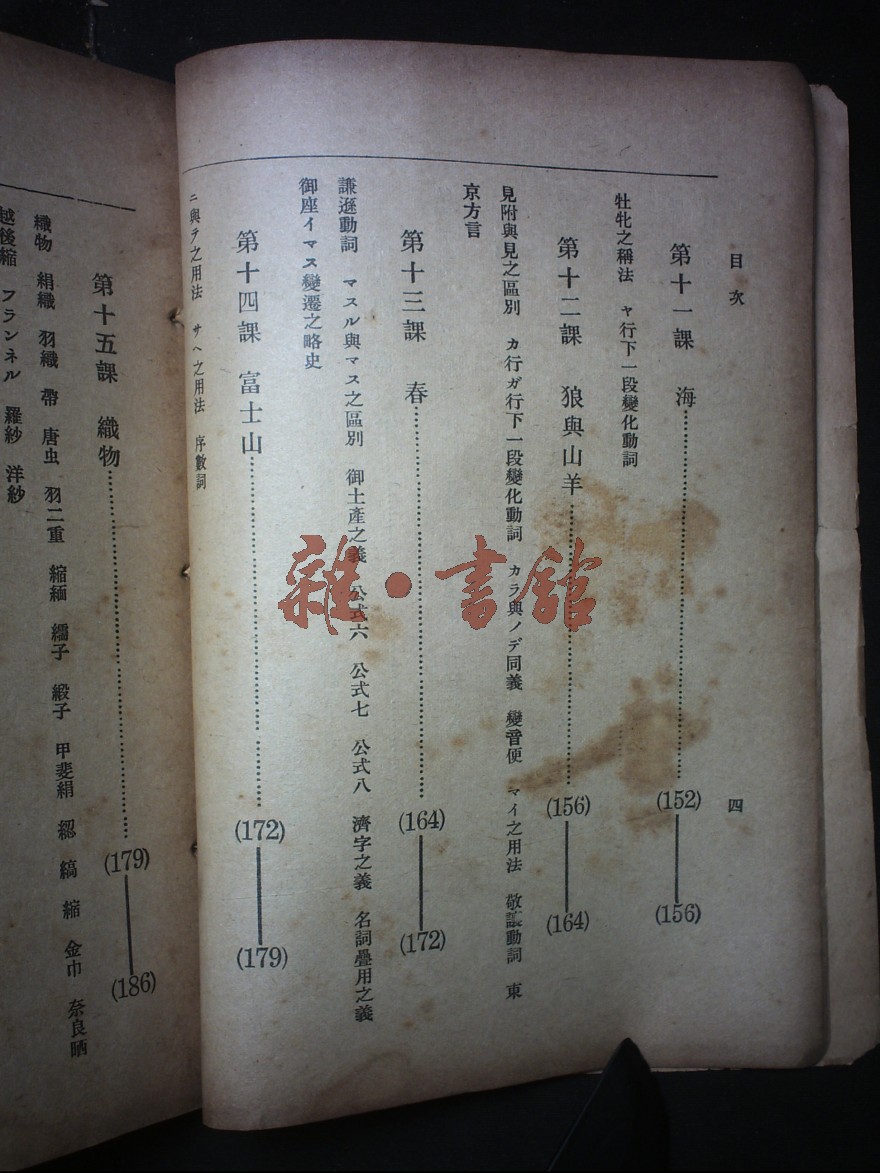 目次
四
第十一課　海 (152)——(156)
牡牝之稱法　ヤ行下一段變化動詞
第十二課　狼與山羊 (156)——(164)
見附與見之區別　カ行ガ行下一段變化動詞　カラ與ノデ同義　變音便　マイ之用法　敬讓動詞　東
京方言
第十三課　春 (164)——(172)
謙遜動詞　マスル與マス之區別　御土產之義　公式六　公式七　公式八　濟字之義　名詞疊用之義
御座イマス變遷之略史
第十四課　富士山 (172)——(179)
ニ與ヲ之用法　サヘ之用法　序數詞
第十五課　織物 (179)——(186)
織物　絹織　羽織　帶　唐虫　羽二重　縮緬　繻子　緞子　甲斐絹　縞　縮　金巾　奈良晒
越後縮　フランネル　羅紗　洋紗
雜·書舘